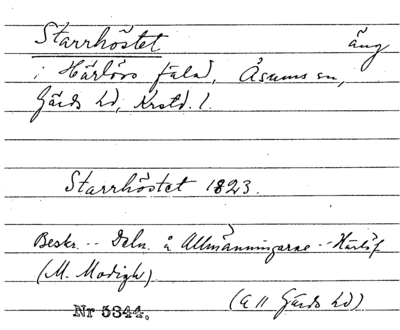 Starrhöstet äng
i Härlövs fälad, Åsums sn,
Gärds hd, Krstd. l.
Starrhöstet 1823.
Beskr. -- Deln. å Allmänningarne -- Härlöf
(M. Modigh)
(a 11 Gärds hd)
Nr 5344.